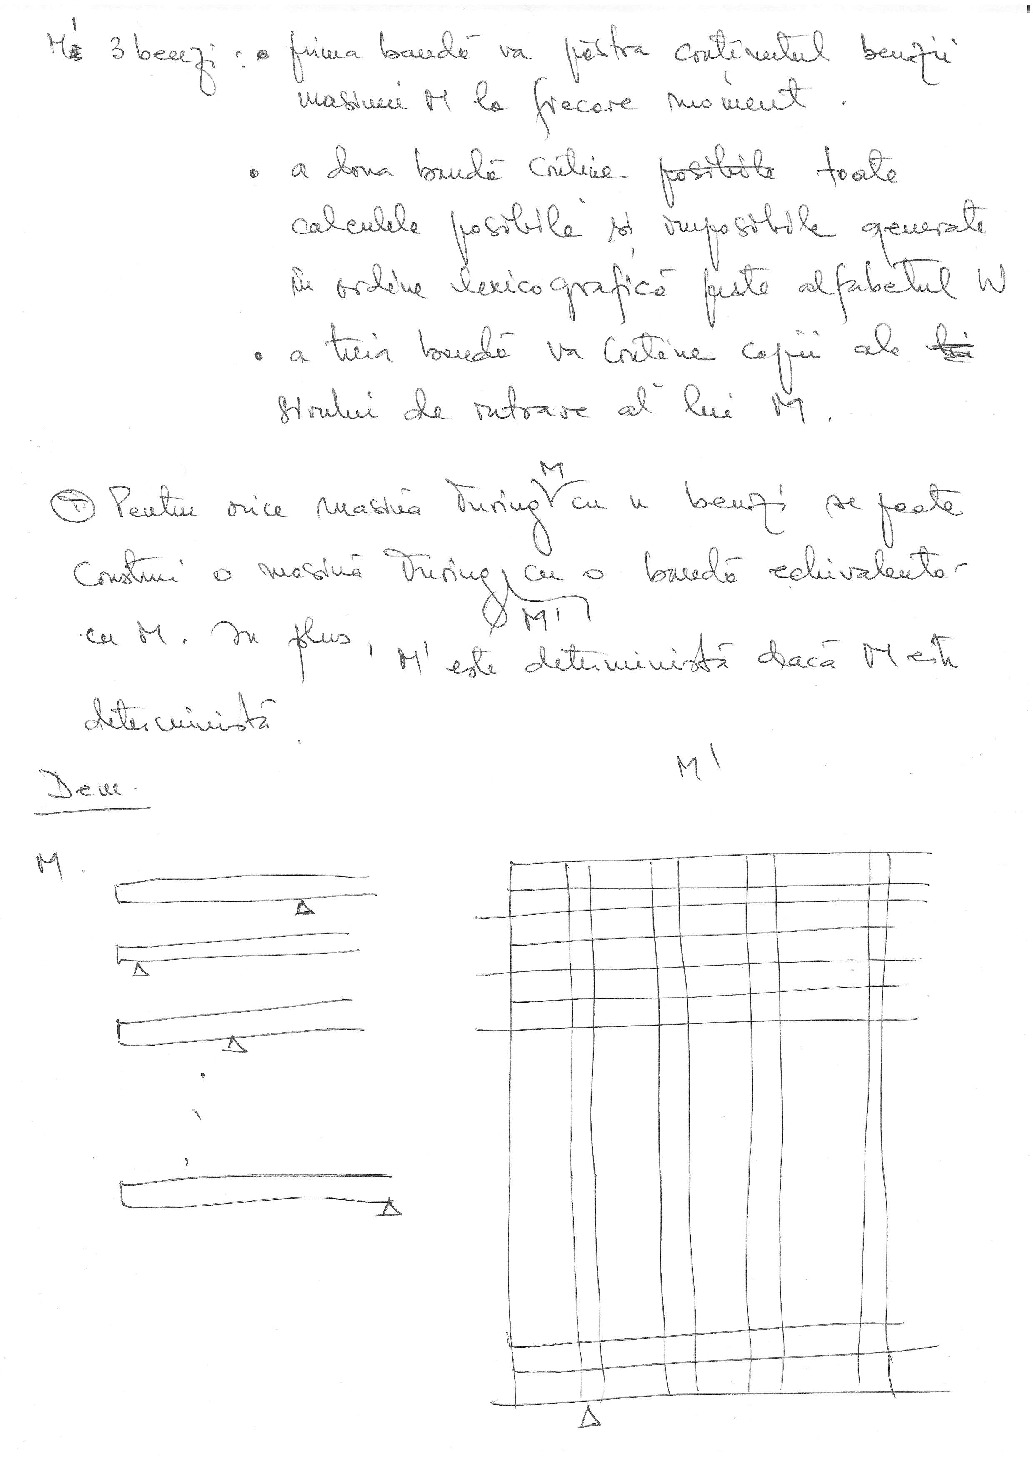 M' 3 benzi : • prima bandă va păstra conținutul benzii
mașinii M la fiecare moment .
• a doua bandă conține posibile toate
calculele posibile și imposibile generate
în ordine lexicografică peste alfabetul W
• a treia bandă va conține copii ale
șirului de intrare al lui M .
M
T Pentru orice mașină Turing cu n benzi se poate
construi o mașină Turing, cu o bandă echivalentă
M'
cu M. În plus, M' este deterministă dacă M este
deterministă.
M'
Dem.
M.